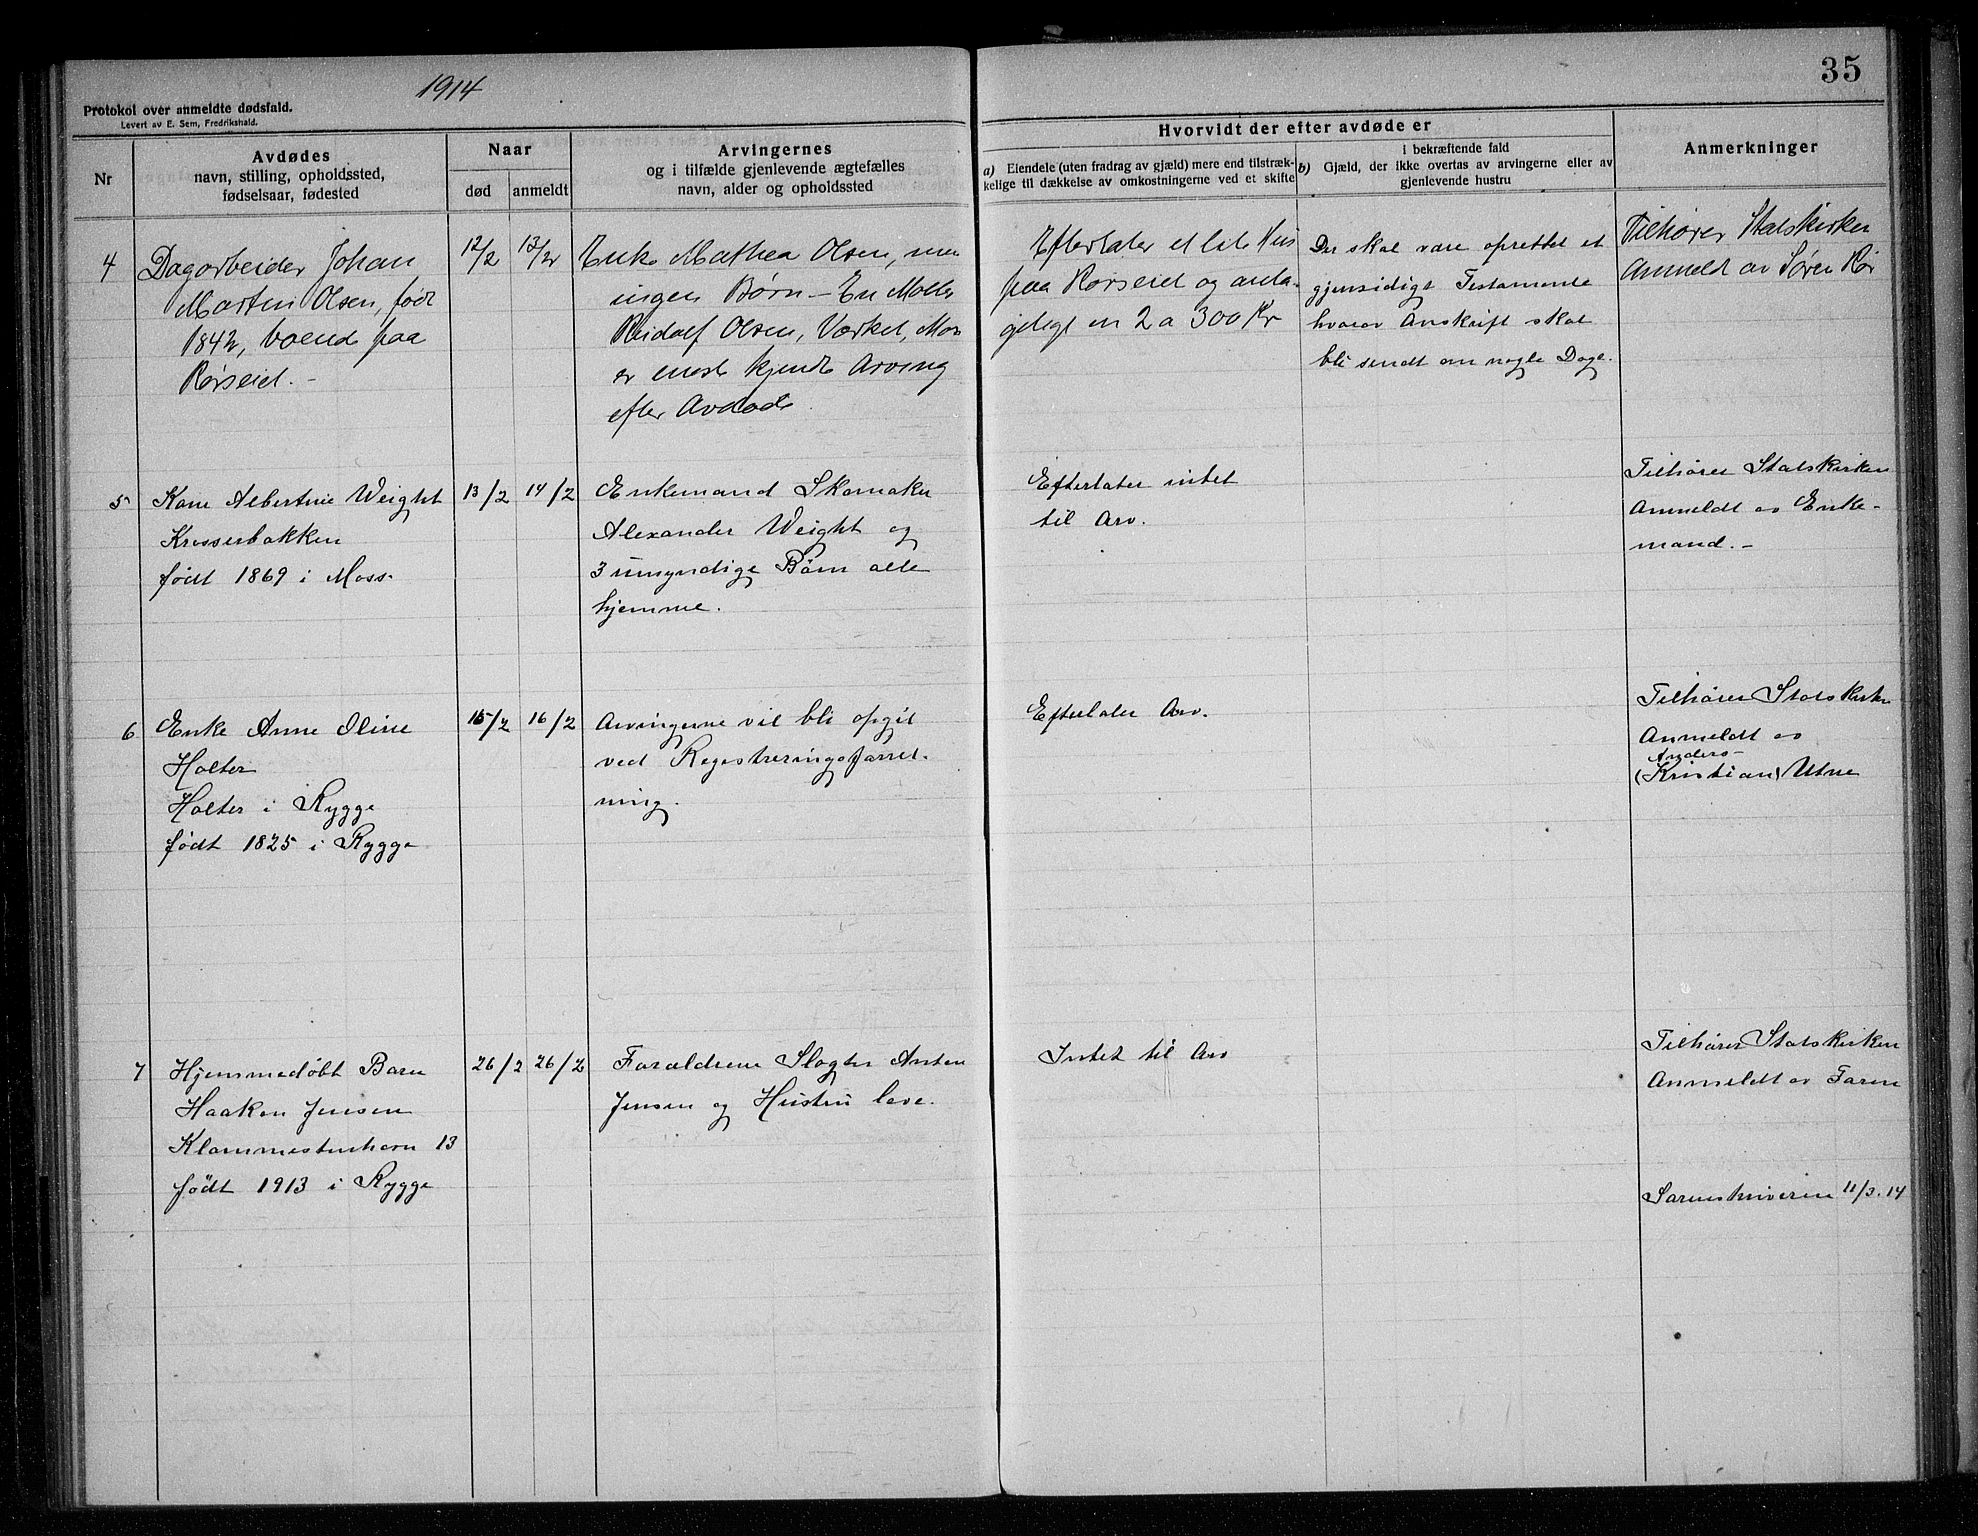 1914
35
Protokol over anmeldte dødsfald.
Levert av E. Sem, Fredrikshald.
Nr
Avdødes
navn, stilling, opholdssted,
fødselsaar, fødested
Naar
død
anmeldt
Arvingernes
og i tilfælde gjenlevende ægtefælles
navn, alder og opholdssted
Hvorvidt der efter avdøde er
a) Eiendele (uten fradrag av gjæld) mere end tilstræk-
kelige til dækkelse av omkostningerne ved et skifte
i bekræftende fald
b) Gjæld, der ikke overtas av arvingerne eller av
gjenlevende hustru
Anmerkninger
4
Dagarbeider Johan
Martin Olsen, født
1842, boende paa
Rørseiet.-
12/2
13/2
Enke Mathea Olsen, men
ingen Børn - En
Reidolf Olsen, Værket, Mos
er eneste kjendte Arving
efter Avdøde.
Efterlater et lite Hus
paa Rørseiet og anta-
geligt en 2 a 300 Kr
Der skal være oprettet et
gjensidigt Testamente
hvorav Avskrift skal
bli sendt om nogle Dage.
Tilhører Statskirken
Anmeldt av Søren Rør
5
Kone Albertine Weight
Krosserbakken
født 1869 i Moss.
13/2
14/2
Enkemand Skomaker
Alexander Weight og
3 umyndige Børn alle
hjemme.
Efterlater intet
til Arv.
Tilhører Statskirken
Anmeldt av Enke-
mand.-
6
Enke Anne Oline
Holter
Holter i Rygge
født 1825 i Rygge
15/2
16/2
Arvingerne vil bli opgit
ved Registreringsforret-
ning.
Efterlater Arv.
Tilhører Statskirken
Anmeldt av
Anders-
(Kristian) Utne
7
Hjemmedøbt Barn
Haakon Jensen
Klommestenhavn 13
født 1913 i Rygge
26/2
26/2
Forældrene Slagter Anton
Jensen og Hustru leve.
Intet til Arv
Tilhører Statskirken
Anmeldt av Faren
Sorenskriveren 11/3.14